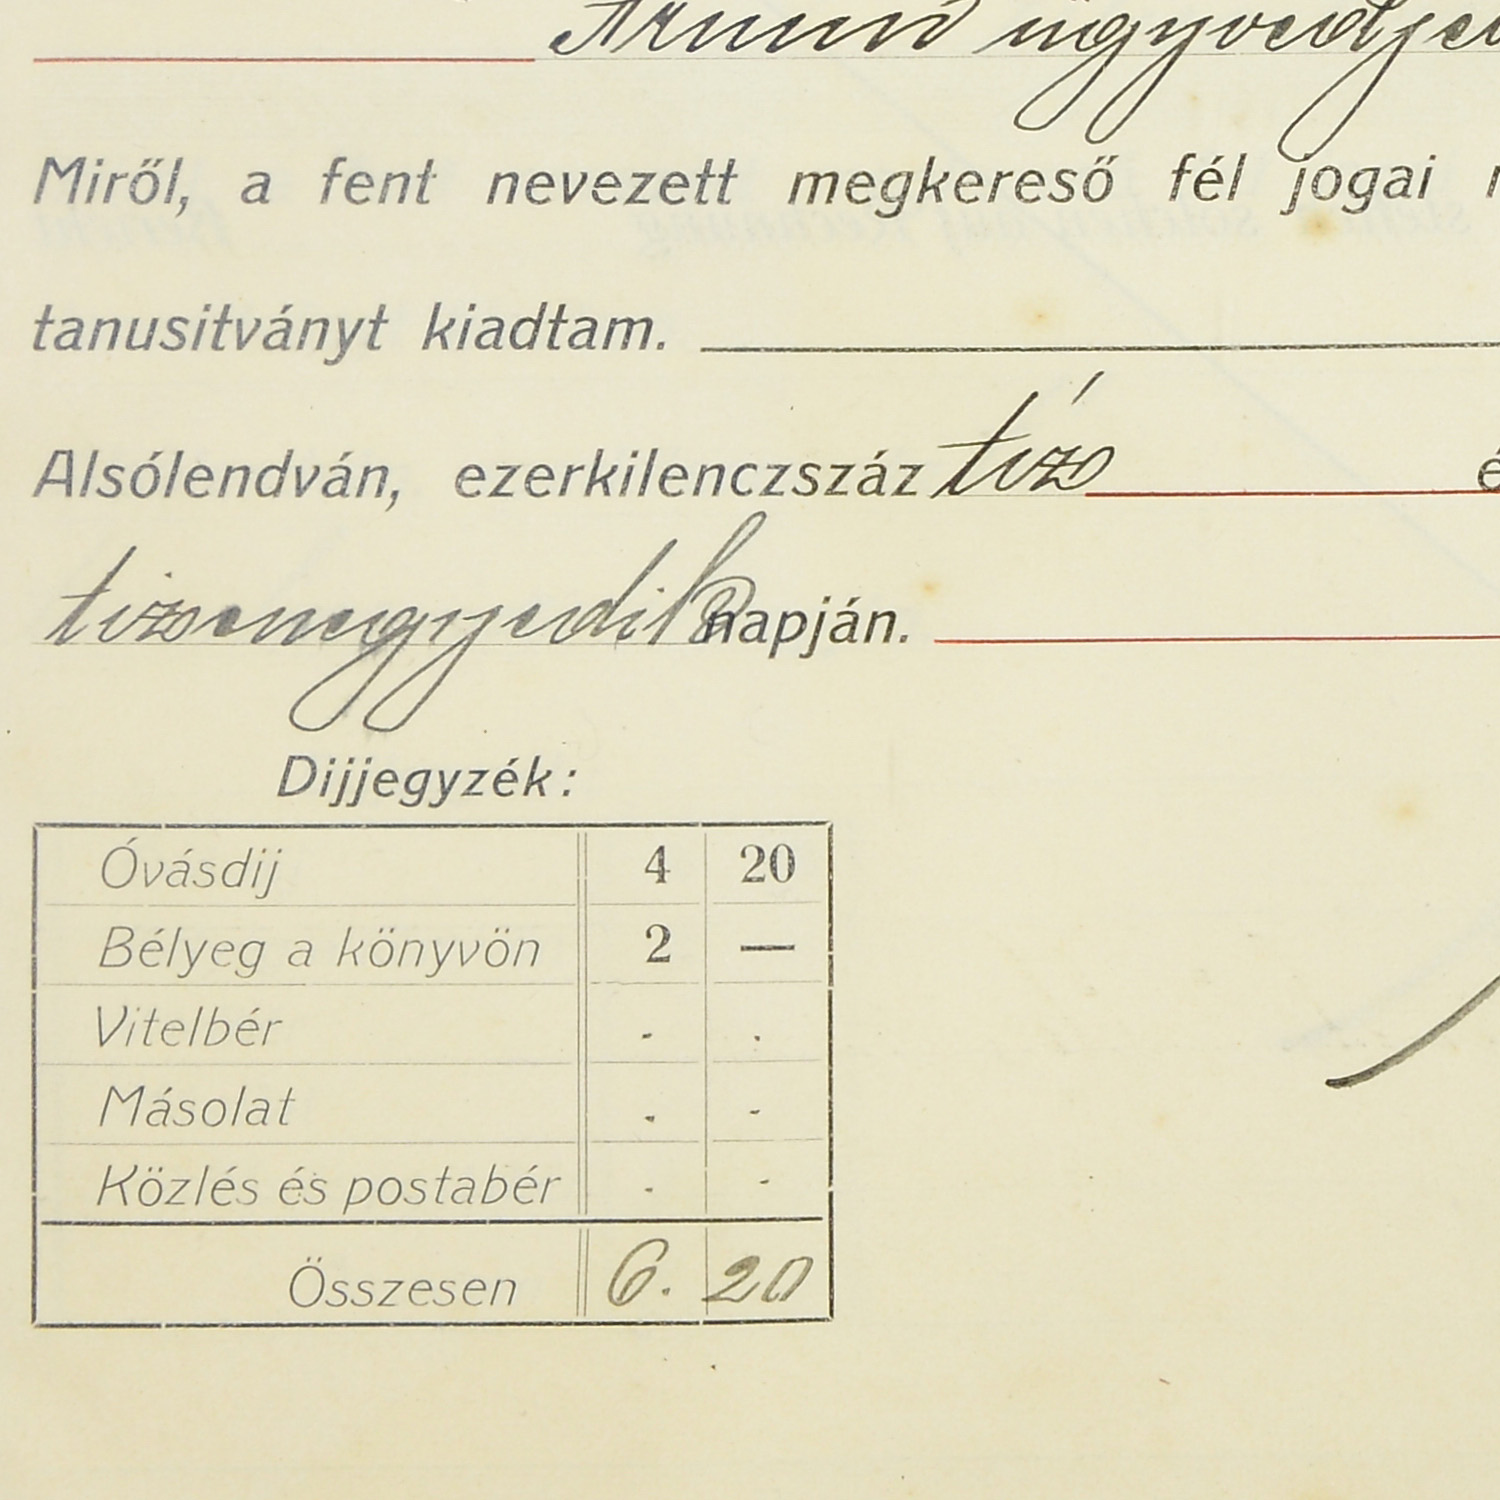 Ármin ügyvédje
Miről, a fent nevezett megkereső fél jogai
tanusitványt kiadtam.
Alsólendván, ezerkilenczszáz tiz é
tizenegyedik napján.
Dijjegyzék:
Óvásdij 4 20
Bélyeg a könyvön 2 —
Vitelbér . .
Másolat . -
Közlés és postabér . -
Összesen 6. 20